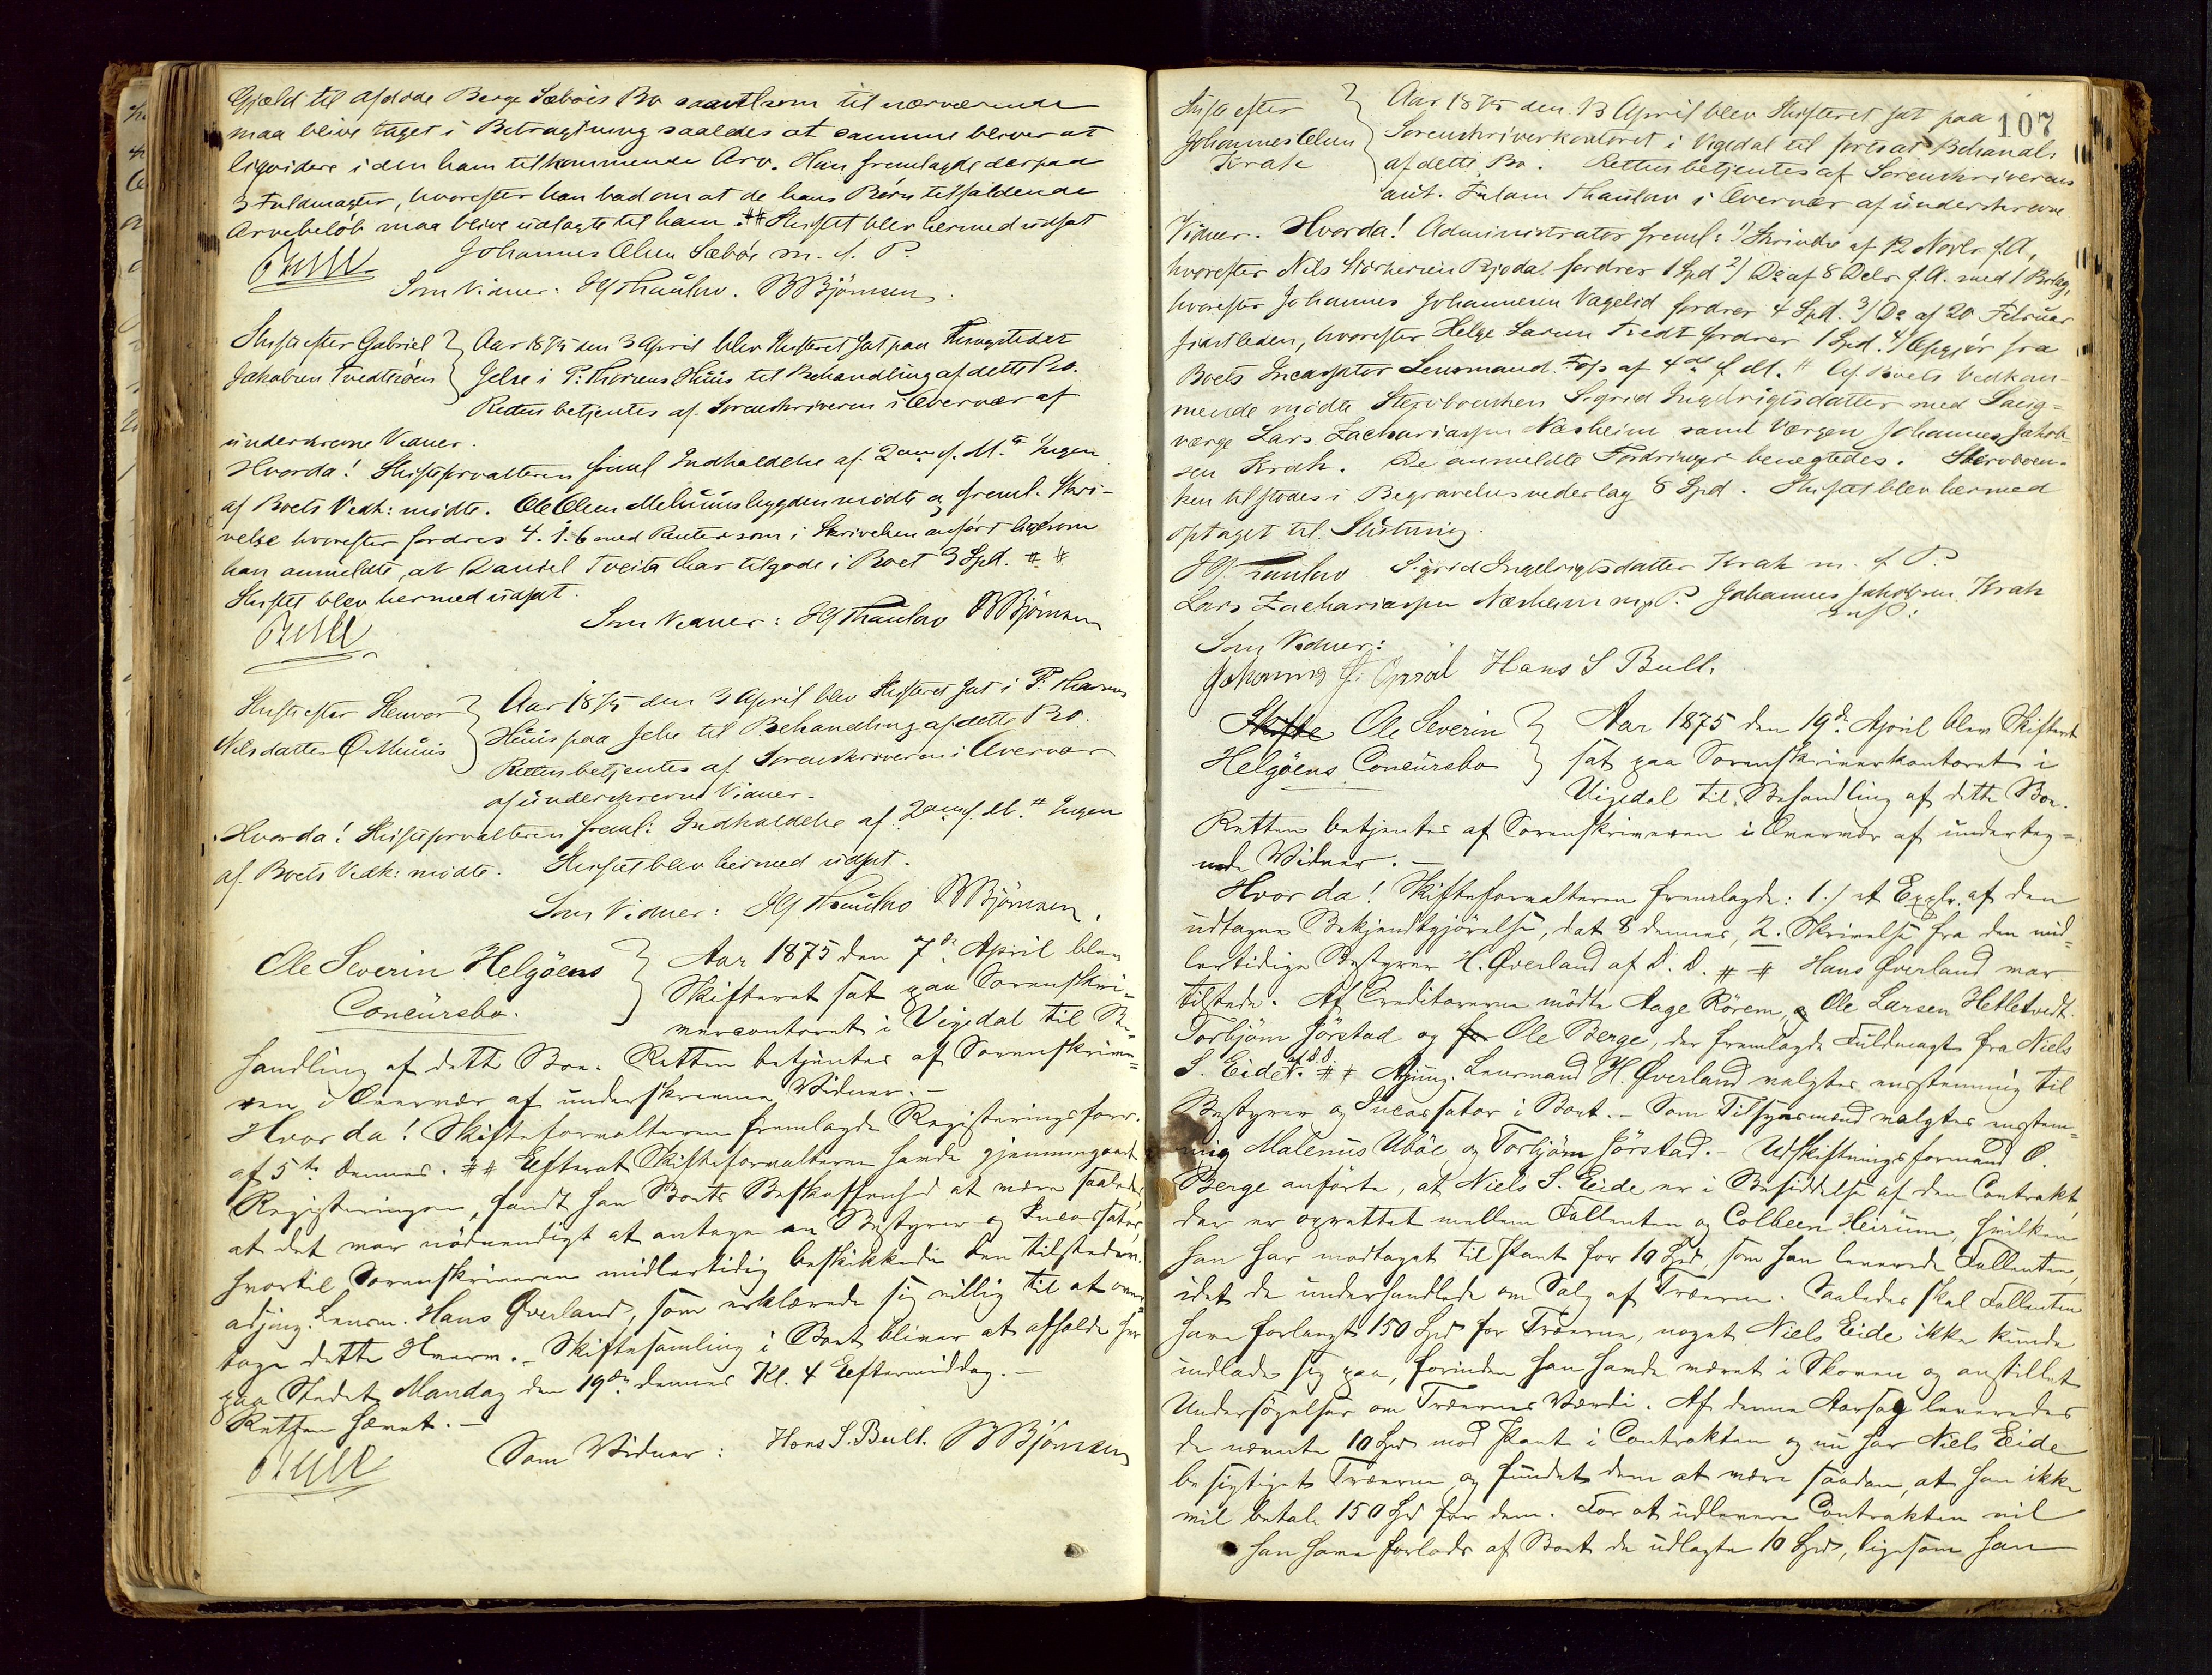 Gjæld til afdøde Berge Sæbøes Bo saavelsom til nærværende
maa blive taget i Betragtning saaledes at samme bliver at
liqvidere i den ham tilkommende Arv. Han fremlagde derpaa
3 Fuldmagter, hvorefter han bad om at de hans Børn tilfaldende
Arvebeløb maa blive udlagte til ham. ## Skiftet blev hermed udsat
Bull Johannes Olsen Sæbøe m. f. P.
Som Vidner: HG Thaulow. B Bjørnsen.
Skifte efter Gabriel Aar 1875 den 3 April blev Skifteret sat paa Thingstedet
Jakobsen Tvedtmoen Jelse i P. Thorsens Huus til Behandling af dette Bo.
Retten betjentes af Sorenskriveren i Overvær af
underskrevne Vidner.
Hvorda! Skifteforvalteren freml. Indkaldelse af 2den f. M. # Ingen
af Boets Vedk: mødte. Ole Olsen Mehuusbygden mødte og freml. Skri-
velse hvorefter fordres 4. 1. 6 med Renter som i Skrivelsen anført ligesom
han anmeldte, at Daniel Tveita har tilgode i Boet 3 Spd. # #
Skiftet blev hermed udsat.
Bull Som Vidner: HG Thaulow B Bjørnsen
Skifte efter Helvor Aar 1875 den 3 April blev Skifteret sat i P. Thorsens
Nilsdatter Huus paa Jelse til Behandling af dette Bo.
Retten betjentes af Sorenskriveren i Overvær
af underskrevne Vidner.
Hvorda! Skifteforvalteren freml: Indkaldelse af 2den f. M. # Ingen
af Boets Vedk: mødte. Skiftet blev hermed udsat.
Som Vidner: HG Thaulow B Bjørnsen.
Ole Severin Helgøens Aar 1875 den 7de April blev
Concursbo. Skifteret sat paa Sorenskri-
vercontoret i Vigedal til Be-
handling af dette Boe. Retten betjentes af Sorenskrive-
ren i Overvær af underskrevne Vidner. —
Hvor da! Skifteforvalteren fremlagde Registeringsforr.
af 5te dennes. ## Efterat Skifteforvalteren havde gjennemgaaet
Registeringen, fandt han Boets Beskaffenhed at være saaledes
at det var nødvendigt at antage en Bestyrer og Incassator,
hvortil Sorenskriveren midlertidig beskikkede den tilstedev.
adjung. Lensm. Hans Øverland, som erklærede sig villig til at over-
tage dette Hverv. — Skiftesamling i Boet bliver at afholde her
paa Stedet Mandag den 19de dennes Kl. 4 Eftermiddag. —
Retten hævet. —
Bull Som Vidner: Hans S. Bull. B Bjørnsen
107
Skifte efter Aar 1875 den 13 April blev Skifteret sat paa
Johannes Olsen Sorenskriverkontoret i Vigedal til fortsat Behand:
Krak af dette Bo. Retten betjentes af Sorenskriverens
aut. Fuldm Thaulow i Overvær af underskrevne
Vidner. Hvorda! Administrator freml: 1) Skrivelse af 12 Novbr f. A,
hvorefter Nils fordrer 1 Spd 2) Do af 8 Debr f. A. med 1 Bilag,
hvorefter Johannes Johannesen Vagelid fordrer 4 Spd. 3) Do af 20 Februar
sidstleden, hvorefter Helge Larsen Tvedt fordrer 1 Spd. 4) Opgjør fra
Boets Incassator Lensmand Fos af 4de d. M. # Af Boets Vedkom-
mende mødte Stervboenken Sigrid Ingebrigtsdatter med Laug-
værge Lars Zachariassen Næsheim samt Værgen Johannes Jakob-
sen Krak. De anmeldte Fordringer benegtedes. Stervboen-
ken tilstodes i Begravelsesvederlag 8 Spd. Skiftet blev hermed
optaget til Slutning.
HG Thaulow Sigrid Ingebrigtsdatter Krak m. f. P.
Lars Zachariassen Næsheim m. f. P. Johannes Jakobsen Krak
m f P:
Som Vidner:
Hans S Bull.
Skifte Ole Severin Aar 1875 den 19de April blev Skifteret
Helgøens Concursbo sat paa Sorenskriverkontoret i
Vigedal til Behandling af dette Boe.
Retten betjentes af Sorenskriveren i Overvær af underteg-
nede Vidner. —
Hvor da! Skifteforvalteren fremlagde: 1./ et Explr. af den
udtagne Bekjendtgjørelse, dat 8 dennes, 2. Skrivelse fra den mid-
lertidige Bestyrer H. Øverland af D. D. # # Hans Øverland var
tilstede. Af Creditorerne mødte Aage Rörem, og Ole Larsen Hetletvedt.
Torbjørn Jörstad og for Ole Berge, der fremlagde Fuldmagt fra Niels
S. Eide af D.D. ## Adjung. Lensmand H. Øverland valgtes enstemmig til
Bestyrer og Incassator i Boet. — Som Tilsynsmænd valgtes enstem-
mig Malenus Ubøe og Torbjørn Jörstad. — Udskiftningsformand O.
Berge anførte, at Niels S. Eide er i Besiddelse af den Contrakt,
der er oprettet mellem Fallenten og Colbeen Heirum, hvilken
han har modtaget til Pant for 10 Spd, som han leverede Fallenten,
idet de underhandlede om Salg af Træerne. Saaledes skal Fallenten
have forlangt 150 Spd for Træerne, noget Niels Eide ikke kunde
indlade sig paa, forinden han havde været i Skoven og anstillet
Undersøgelser om Træernes Værdi. Af denne Aarsag leveredes
de nævnte 10 Spd mod Pant i Contrakten og nu har Niels Eide
besigtiget Træerne og fundet dem at være saadan, at han ikke
vil betale 150 Spd for dem. For at udlevere Contrakten vil
han have forlods af Boet de udlagte 10 Spd, ligesom han